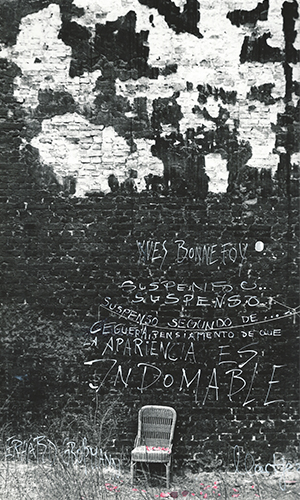 YVES BONNEFOY
SUSPENSO..
SUSPENSO.
SUSPENSO SEGUNDO DE...
CEGUERA PENSIAMENTO DE QUE
LA APARIENCIA ES
INDOMABLE